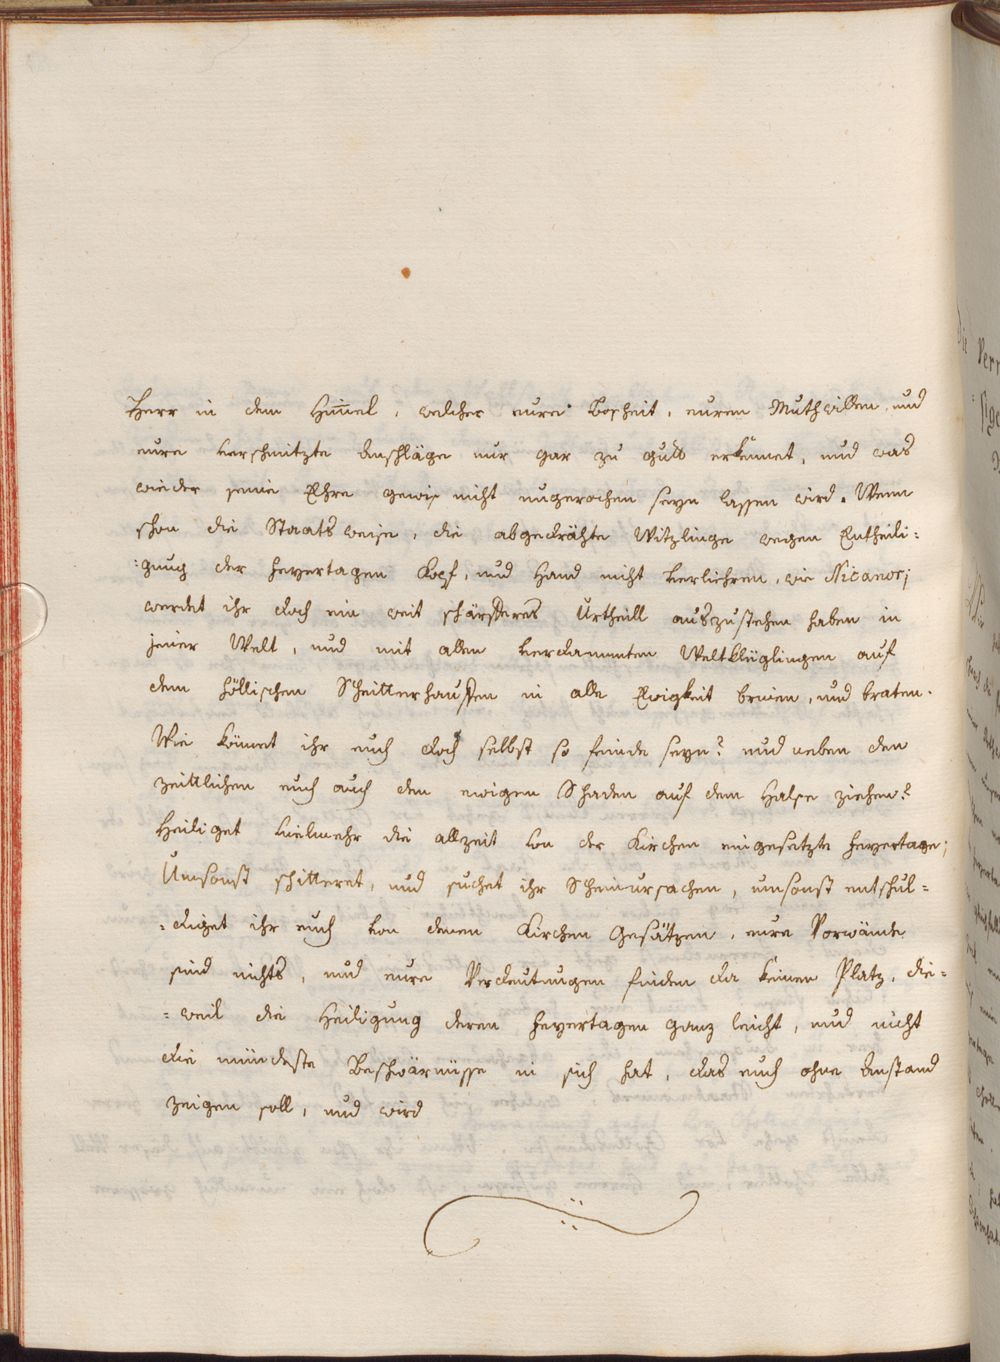 Herr in dem Himmel, welcher eure Bosheit, euren Muthwillen, und
eure verschmitzte Anschläge nur gar zu gutt erkennet, und was
wieder seine Ehre gewis nicht ungerochen seyn lassen wird. Wenn
schon die Staats weise, die abgedrähte Witzlinge wegen Entheili=
=gung der Feyertagen Kopf, und Hand nicht verliehren, wie Nicanor;
werdet ihr doch ein weit schärfferes Urtheill auszustehen haben in
jener Welt, und mit allen verdammten Weltklüglingen auf
dem höllischen Scheitterhauffen in alle Ewigkeit brinen, und braten.
Wie könnet ihr euch doch selbst so feinde seyn? und neben den
zeittlichen euch auch den ewigen Schaden auf den Halse ziehen?
Heiliget vielmehr die allzeit von der Kirchen eingesetzte Feyertage;
Umsonst schitteret, und suchet ihr Scheinursachen, umsonst entschul=
=diget ihr euch von denen Kirchen Gesätzen, eure Vorwände
sind nichts, und eure Verdeutungen finden da keinen Platz, die=
=weil die Heiligung deren Feyertagen ganz leicht, und nicht
die mündeste Beschwärnüsse in sich hat, das euch ohne Anstand
zeigen soll, und wird